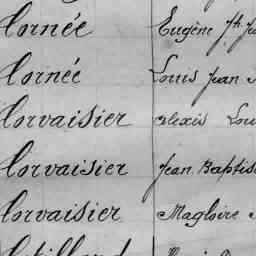 Cornée Eugène
Cornée Louis Jean
Corvaisier Alexis Lou
Corvaisier Jean Baptis
Corvaisier Magloire